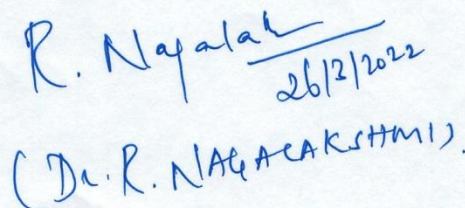 R. Nagalak
26/3/2022
(Dr. R. NAGALAKSHMI).